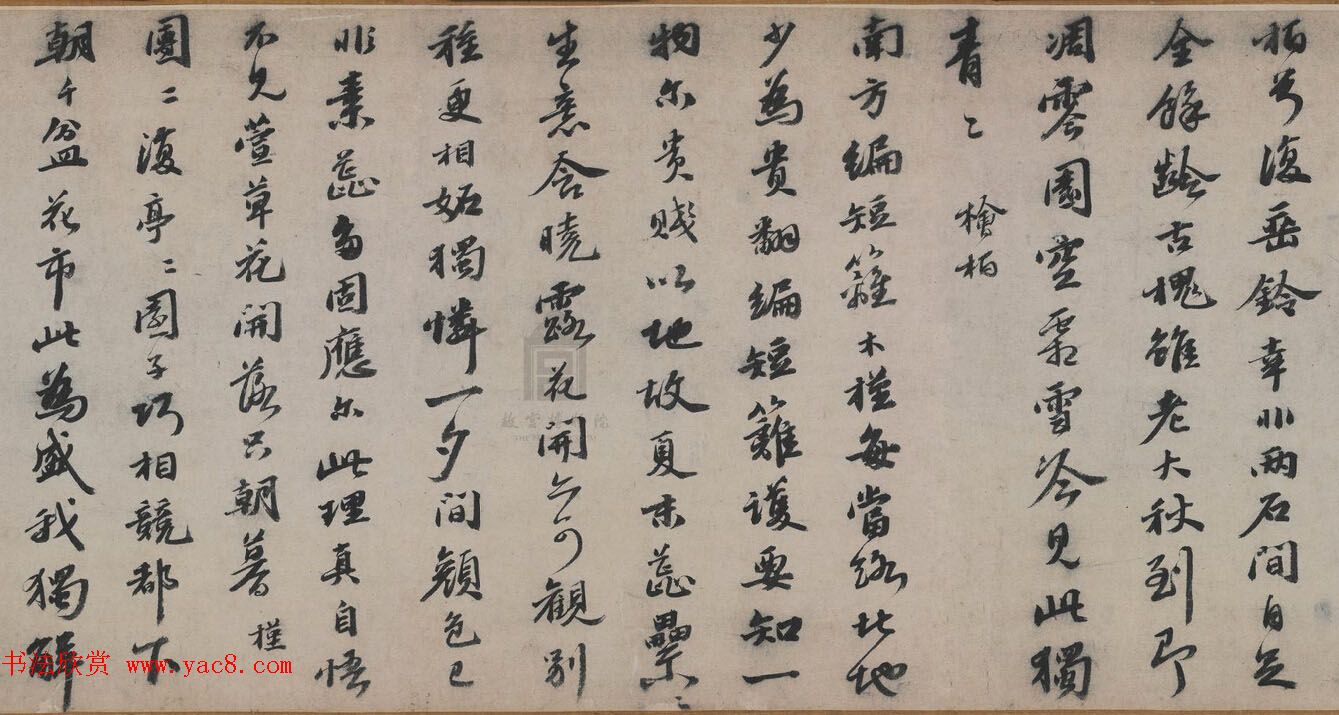 柏復垂鈴幸非兩石間自足
全餘齡古槐雖老大秋到即
凋零園空霜雪冷見此獨
青〻 檜柏
南方編短籬木槿每當路北地
少為貴翻編短籬護要知一
物尔貴賤以地故夏末蕊纍〻
生意含曉露花開亦可觀別
種更相妬獨憐一夕間顏色已
非素蕊固應尔此理真自悟
不見萱草花開落只朝暮 槿
團〻復亭〻園子巧相競都下
朝千盆花市此為盛我獨解
故宮博物院
书法欣赏 www.yac8.com